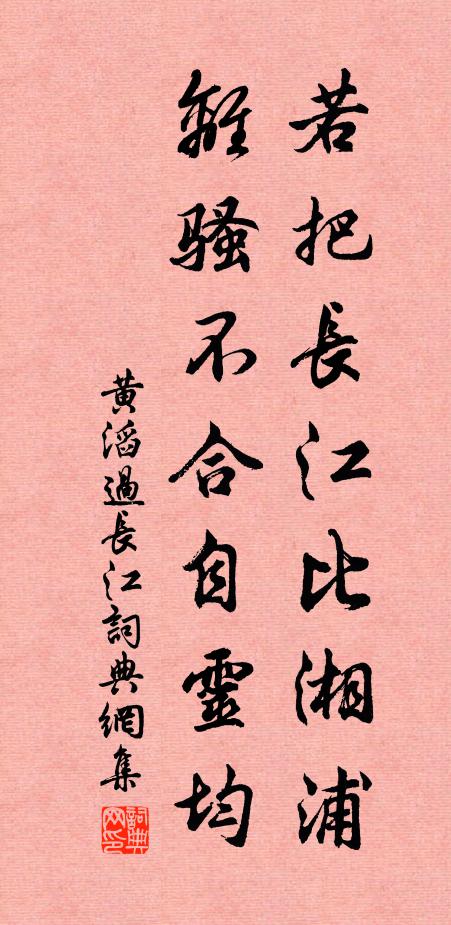 若把長江比湘浦
離騷不合自靈均
黄滔過長江詞典網集
詞典网印